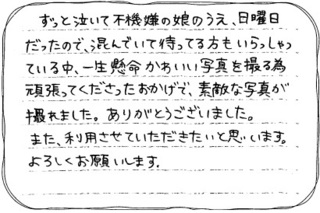 ずっと泣いて不機嫌の娘のうえ、日曜日
だったので、混んでいて待ってる方もいらっしゃっ
ている中、一生懸命かわいい写真を撮る為
頑張ってくださったおかげで、素敵な写真が
撮れました。ありがとうございました。
また、利用させていただきたいと思います。
よろしくお願いします。